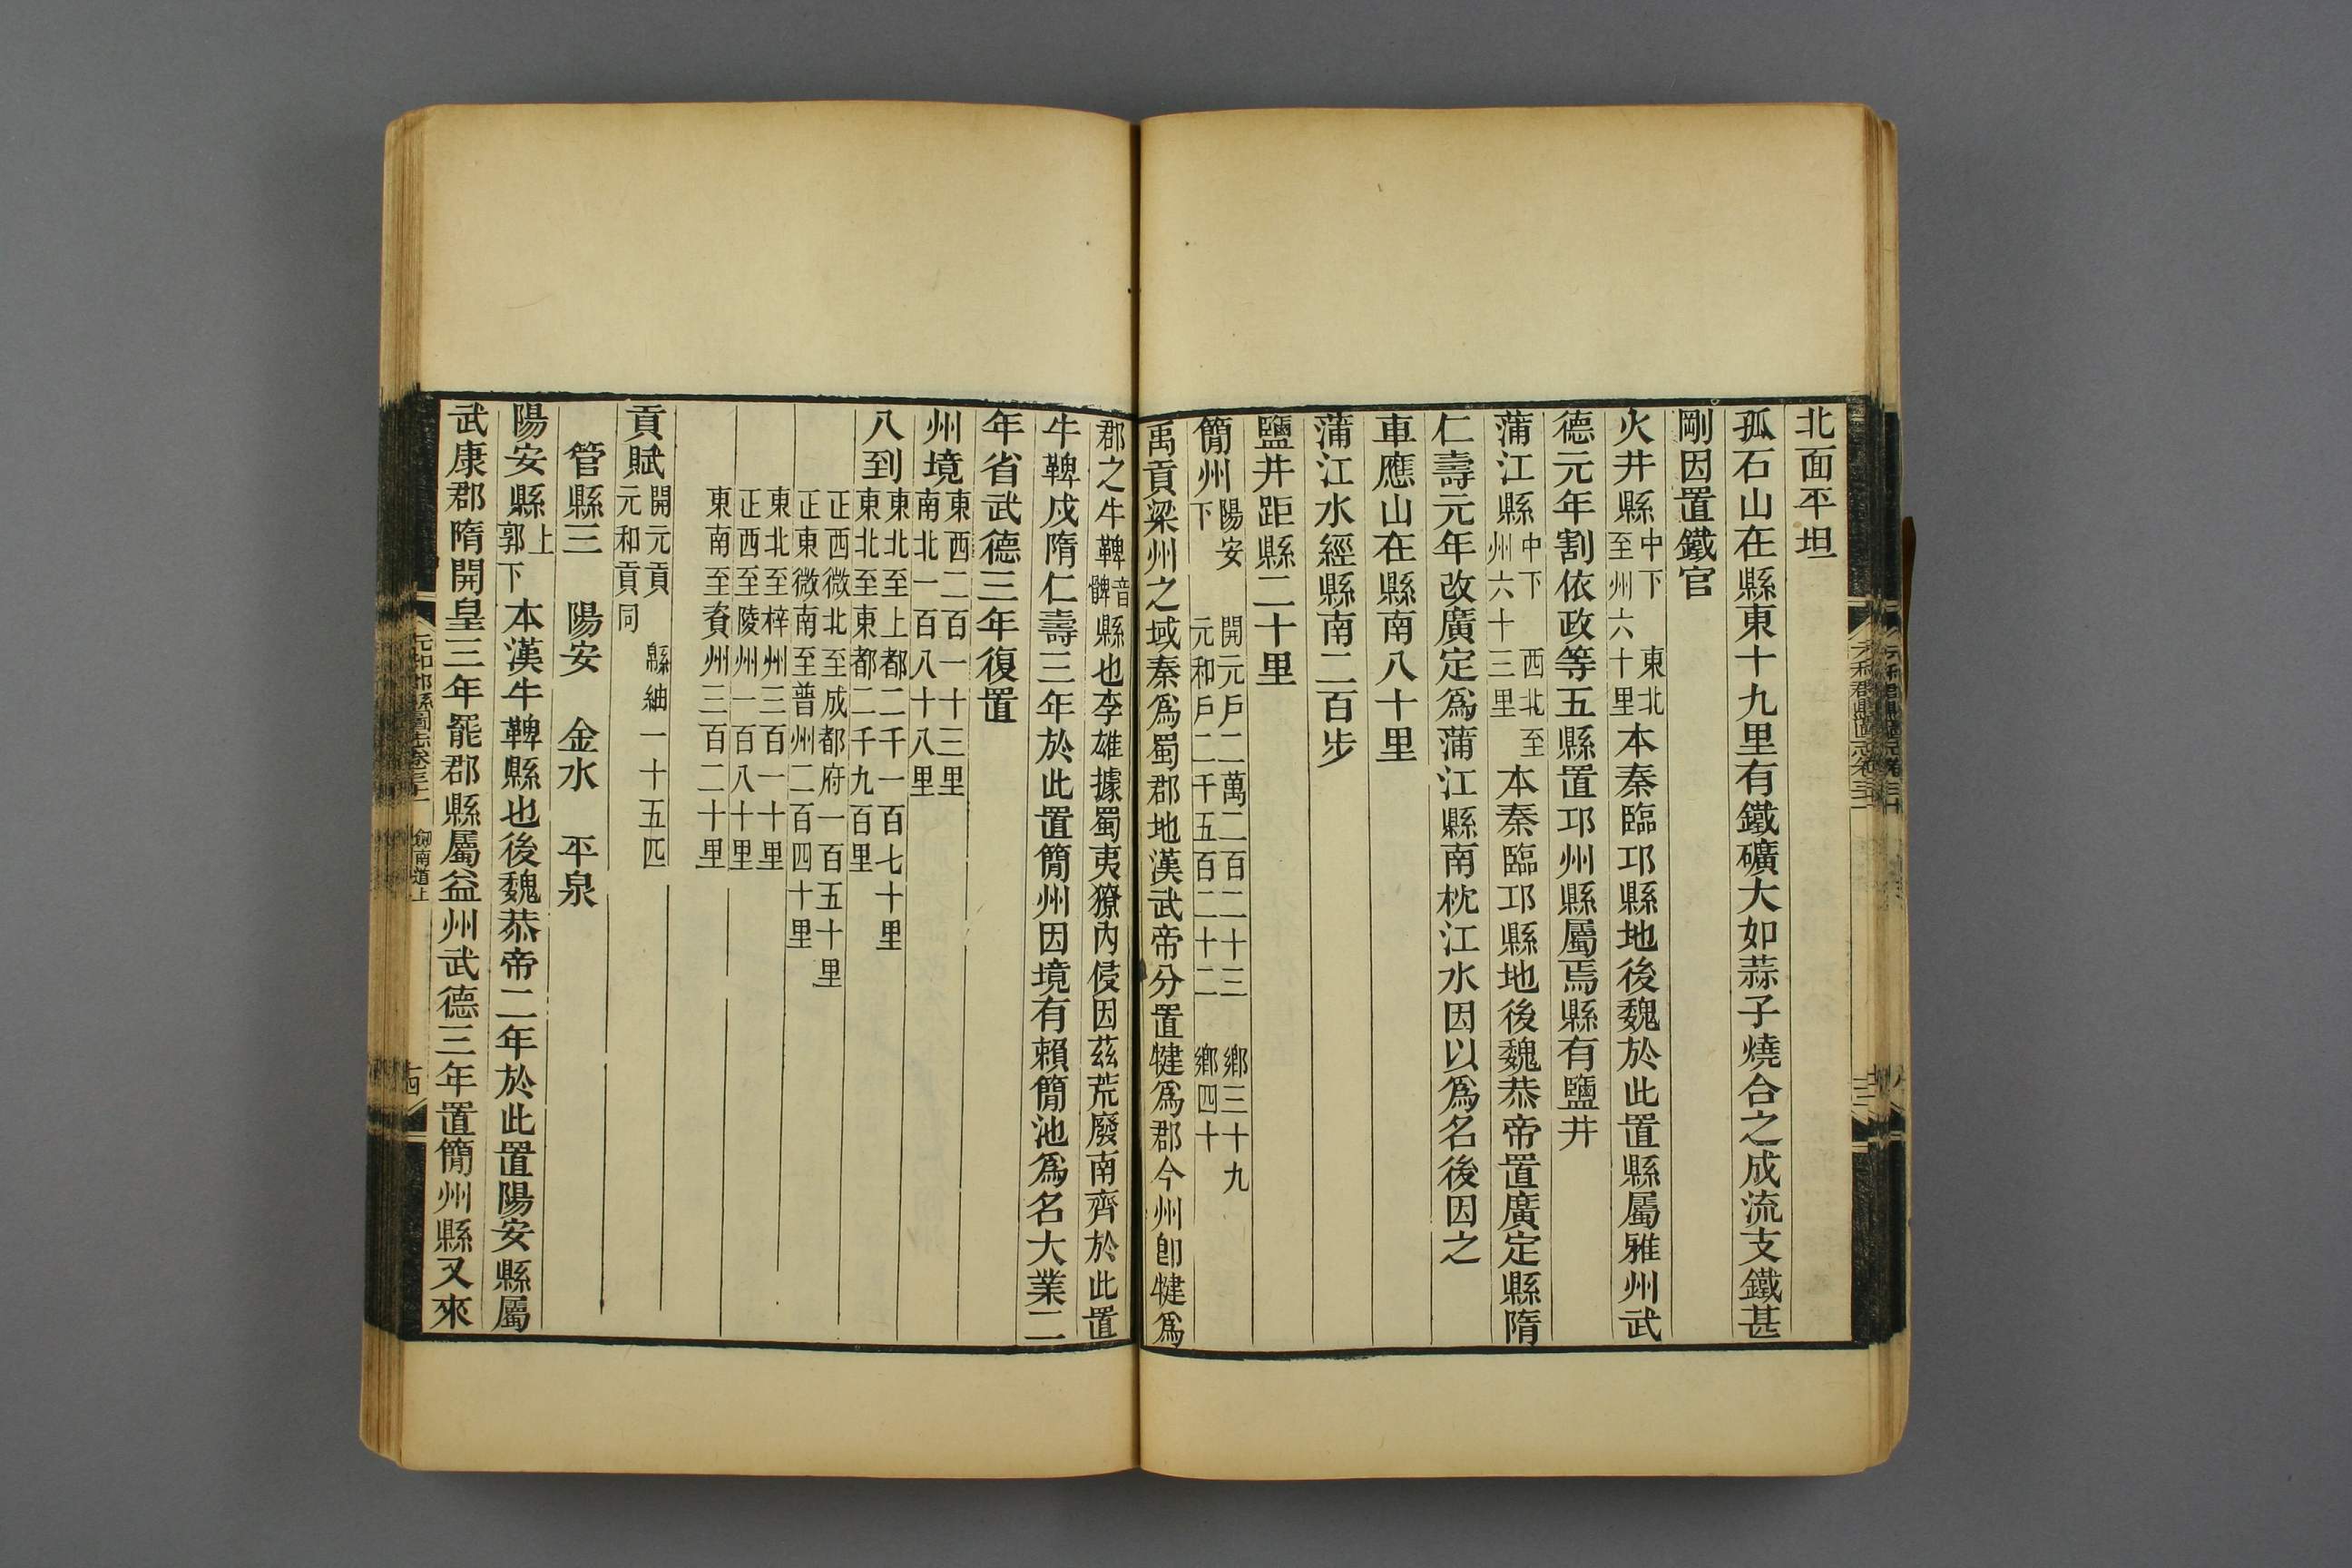 北面平坦
孤石山在縣東十九里有鐵礦大如蒜子燒合之成流支鐵甚
剛因置鐵官
火井縣中下 東北至州六十里本秦臨邛縣地後魏於此置縣屬雅州武
德元年割依政等五縣置邛州縣屬焉縣有鹽井
蒲江縣中下 西北至州六十三里本秦臨邛縣地後魏恭帝置廣定縣隋
仁壽元年改廣定爲蒲江縣南枕江水因以爲名後因之
車應山在縣南八十里
蒲江水經縣南二百步
鹽井距縣二十里
簡州陽安下 開元戶二萬二百二十三 鄉三十九 元和戶二千五百二十二 鄉四十
禹貢梁州之域秦爲蜀郡地漢武帝分置犍爲郡今州卽犍爲
郡之牛鞞音髀縣也李雄據蜀夷獠內侵因茲荒廢南齊於此置
牛鞞戍隋仁壽三年於此置簡州因境有賴簡池爲名大業二
年省武德三年復置
州境東西二百一十三里 南北一百八十八里
八到東北至上都二千一百七十里 東北至東都二千九百里
正西微北至成都府一百五十里 正東微南至普州二百四十里
東北至梓州三百一十里 正西至陵州一百八十里
東南至資州三百二十里
貢賦開元貢 緜紬一十五匹 元和貢同
管縣三 陽安 金水 平泉
陽安縣上 郭下 本漢牛鞞縣也後魏恭帝二年於此置陽安縣屬
武康郡隋開皇三年罷郡縣屬益州武德三年置簡州縣又來
元和郡縣圖志卷三十一 劍南道上 十四